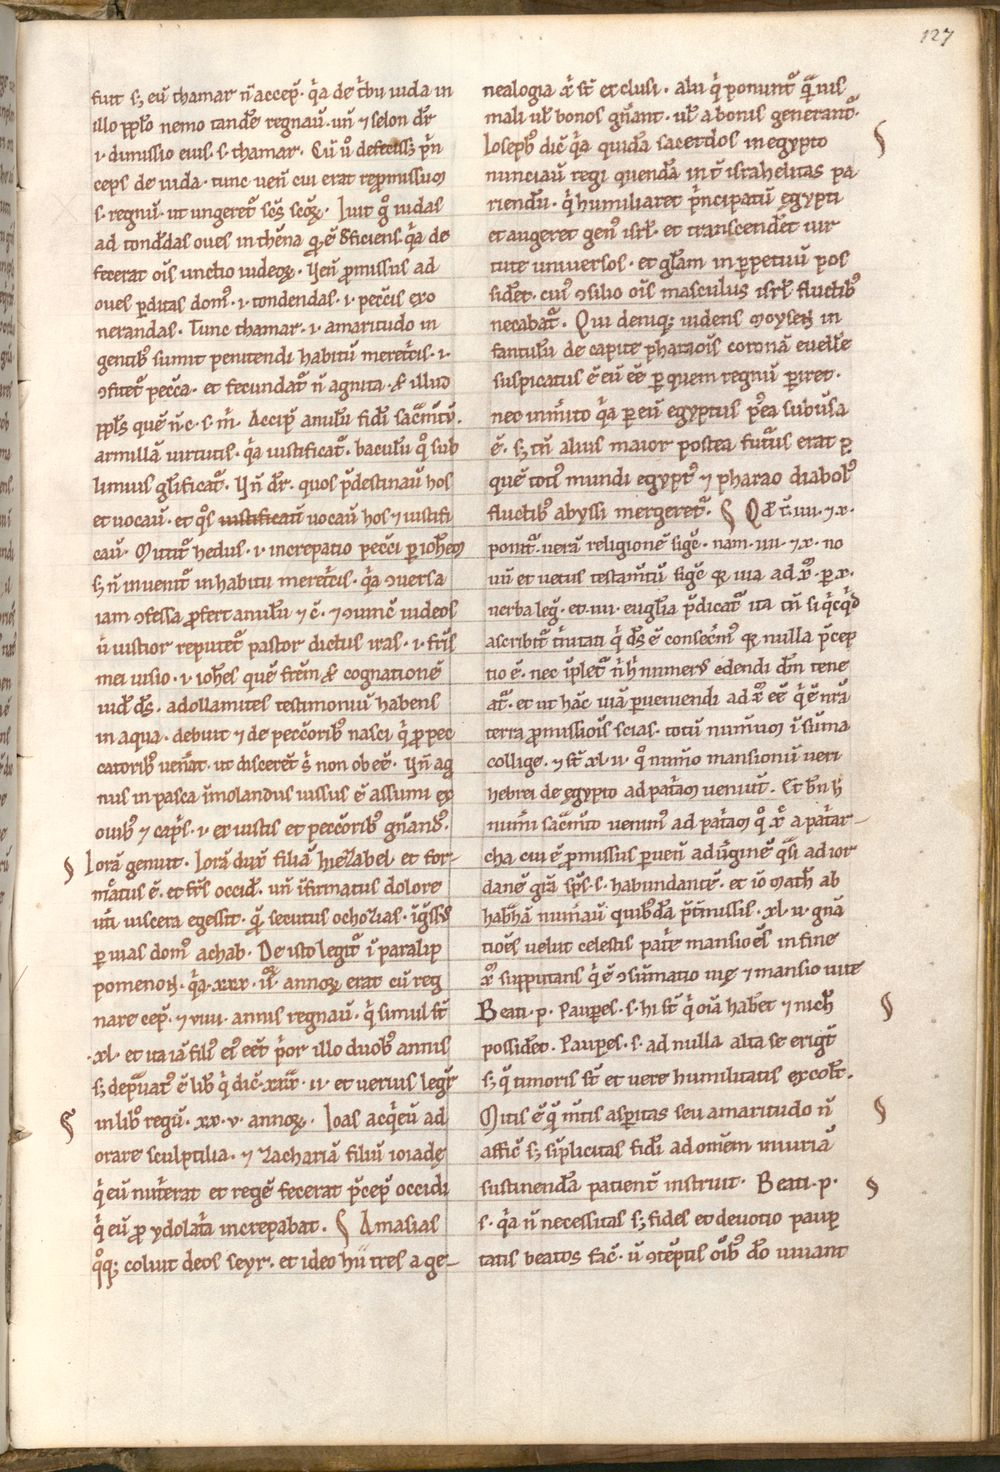 127
fuit s; eū thamar n̄ accep̄. q̇a de t̄bu iuda in
illo pp̄lo nemo tandē regnaū. uñ ⁊ selon dr̄
.i. dimissio eius. s. thamar. Cū u̓ defecisset p̄n
ceps de iuda. tunc uen̄ cui erat rep̄missum
s. regnū. ut ungeret̄ sc̄s sc̄oꝝ. Iuit g̊ iudas
ad tondēdas oues in thēna q̄ ē deficiens. q̇a de
fecerat oīs unctio iudeoꝝ. Ven̄ p̄missus ad
oues p̄ditas dom̓ .i. tondendas .i. pecc̄is exo
nerandas. Tunc thamar .i. amaritudo in
gentib̓ sumit penitendi habitū meret̓cis .i.
ꝯfitet̄ pecc̄a. et fecundat̄ n̄ agnita. & illud
pp̄ls quē n̄ c̄. s. m̓. Accip̄ anulū fidī sac̄m̄tū.
armillā uirtutis. q̇a iustificat̄. baculū q̊ sub
limius gl̄ificat̄. Vn̄ dr̄. quos p̄destinaū hos
et uocaū. et q̊s iustificaū uocaū hos ⁊ iustifi
caū. Mittit̄ hedus .i. increpatio pecc̄i p̄ ioh̄em
s; n̄ inuenit̄ in habitu meret̓cis. q̇a ꝯuersa
iam ꝯfessa p̄fert anulū ⁊ c̄. ⁊ ꝯuinc̄ iudeos
ū iustior reputet̄ pastor dictus iras .i. fr̄is
mei uisio .i. ioh̄es quē fr̄em & cognationē
uid̄ dS̄. adollamites testimoniū habens
in aqua. debuit ⁊ de pecc̄orib̓ nasci q̇ p̄ pec
catorib̓ ven̄at. ut disceret̄ s̓ non obē̄e. Vn̄ ag
nus in pasca im̄olandus iussus ē assumi ex
ouib̓ ⁊ cap̄s .i. ex iustis et pecc̄orib̓ gn̄and̓.
§ Iorā genuit. Iorā dux̄ filiā hiezabel. et for-
matus ē. et fr̄s occid̄. uñ ī̄firmatus dolore
utī uiscera egessit. q̄ secutus ochozias. īgs̄s̓
p̄ uias dom̓ achab. De isto legit̄ ī paralip
pomenon̄. q̇a .xxx. ii. annoꝝ erat cū reg
nare cep̄. ⁊ viii. annis regnaū. q̇ simul st̄
.xl. et ita iā fili̓ ei̓ eēt p̓or illo duob̓ annis
s; dep̄uat̓ ē lib̄ q̇ dic̄ .xxx. ii. et uerius legr̄
§ in lib̓ regū .xx. v. annoꝝ. Ioas acq̇eū ad
orare sculptilia. ⁊ zachariā filiū ioiadę
q̇ eū nut̓erat et regē fecerat p̄cep̄ occidi
q̇ eū p̄ ydolat̓a increpabat. § Amasias
q̊q; coluit deos seyr. et ideo hii tres a ge-
nealogia x̄ st̄ exclusi. alii q̇ ponunt̄ q̄uis
mali ul̄ bonos gn̄ant. ul̄ a bonis generant̄.
Ioseph̓ dic̄ q̇a quidā sacerdos in egypto §
nunciaū regi quendā int̄ israhelitas pa
riendū. q̇ humiliaret p̓ncipatū egypti
et augeret gen̓ isrl̄. et transcendēt uir
tute uniuersos. et gl̄am in p̄petuū pos
sidēt. cui̓ ꝯsilio oīs masculus isrl̄. fluctib̓
necabat̄. Qui deniq; uidens moysen in
fantulū de capite pharaōis coronā euell̄e
suspicatus ē eū eē p̄ quem regnū p̄iret.
nec inmito q̇a p̄ eū egyptus p̄ea subūsa
ē. s; tn̄ alius maior postea futūs erat p̄
quē tot̓ mundi egypt̓ ⁊ pharao diabol̓
fluctib̓ abyssi mergeret̄. § Qd̄ t̄. iiii. ⁊ x.
ponit̄. uerā religionē sigē. nam. iiii. ⁊ x. no
uū et uetus testam̄tū sigē qr̄ uia ad x̄. p̄ x.
uerba leg̓. et iiii. eugl̄ia p̄dicat̄ ita tn̄ si q̇cq̇d
ascribit̄ t̓nitati q̇ dS̄ ē consec̄m̓ qr̄ nulla p̄cep
tio ē. nec īplet̄ n̓ h̓ numer̓ edendi dm̄ tene
at̄. et ut hāc uiā p̄ueniendi ad x̄ eē q̇ ē nrā
terra p̄missiōis scias. totū num̄um ī sūma
collige. ⁊ st̄ xl. ii. q̊ num̄o mansionū ueri
hebrei de egypto ad pat̓am ueniūt. Et bn̄ h̓
num̄i sac̄m̄to uenim̓ ad pat̓am q̊ x̄ a pat̓ar-
cha cui ē p̄missus p̄uen̄ ad ūginē q̄si ad ior
danē grā sp̄s. s. habundantē. et iō math̄ ab
habh̄ā num̄aū quib̓dā p̄t̓missis. xl. ii. gn̄a
tiōes uelut celestis pat̓e mansiōes in fine
x̄ supputans q̇ ē ꝯsūmatio uię ⁊ mansio uite
Beati. p. Paup̄es. s. hi st̄ q̇ oīa hab̄et ⁊ nich̄ §
possidēt. Paup̄es. s. ad nulla alta se erigt̄
s; q̄ timoris st̄ et uere humilitatis excolt̄.
Mitis ē q̄ m̄tis asp̄itas seu amaritudo n̄ §
affic̄ s; sīplicitas fidī ad omēm iniuriā
sustinendā patient̄ instruit. Beati. p. §
s. q̇a n̄ necessitas s; fides et deuotio paup̄
tatis beatos fac̄. ū ꝯtēptis oīb̓ dō uiuant